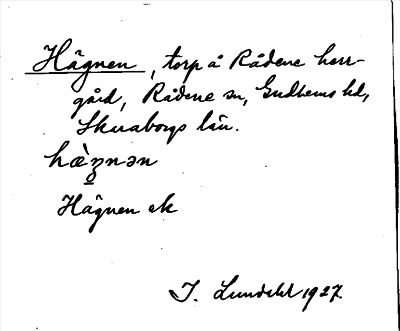 Hägnen, torp å Rådene herr-
gård, Rådene sn, Gudhems hd,
Skaraborgs län.
hæ̀ŋnən
Hägnen ek
I. Lundahl 1927.